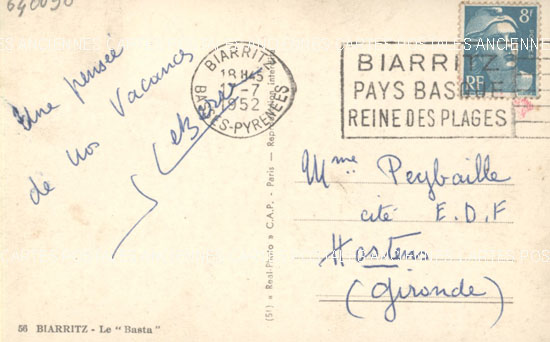 640090
Une pensée
de nos Vacances
BIARRITZ
18H45
-7
1952
BASSES-PYRENEES
BIARRITZ
PAYS BASQUE
REINE DES PLAGES
8F
RF
Mme Peybaille
cité E.D.F
Hostens
(Gironde)
(51) « Real-Photo » C.A.P. - Paris — Reproduction interdite
56 BIARRITZ - Le "Basta"
CARTES POSTALES ANCIENNES